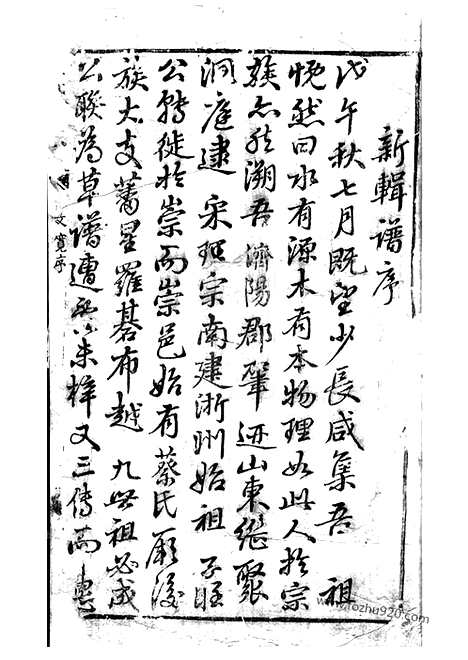 新輯譜序
戊午秋七月既望少長咸集吾祖
恍然曰水有源木有本物理如此人於宗
族亦然溯吾濟陽郡肇迹山東繼聚
洞庭建宋理宗南建浙洲始祖子旺
公轉徙於崇而崇邑始有蔡氏厥後
族大支蕃星羅碁布越九世祖必成
公聯為草譜遭兵未梓又三傳而
文寬序
www.fozhu920.com